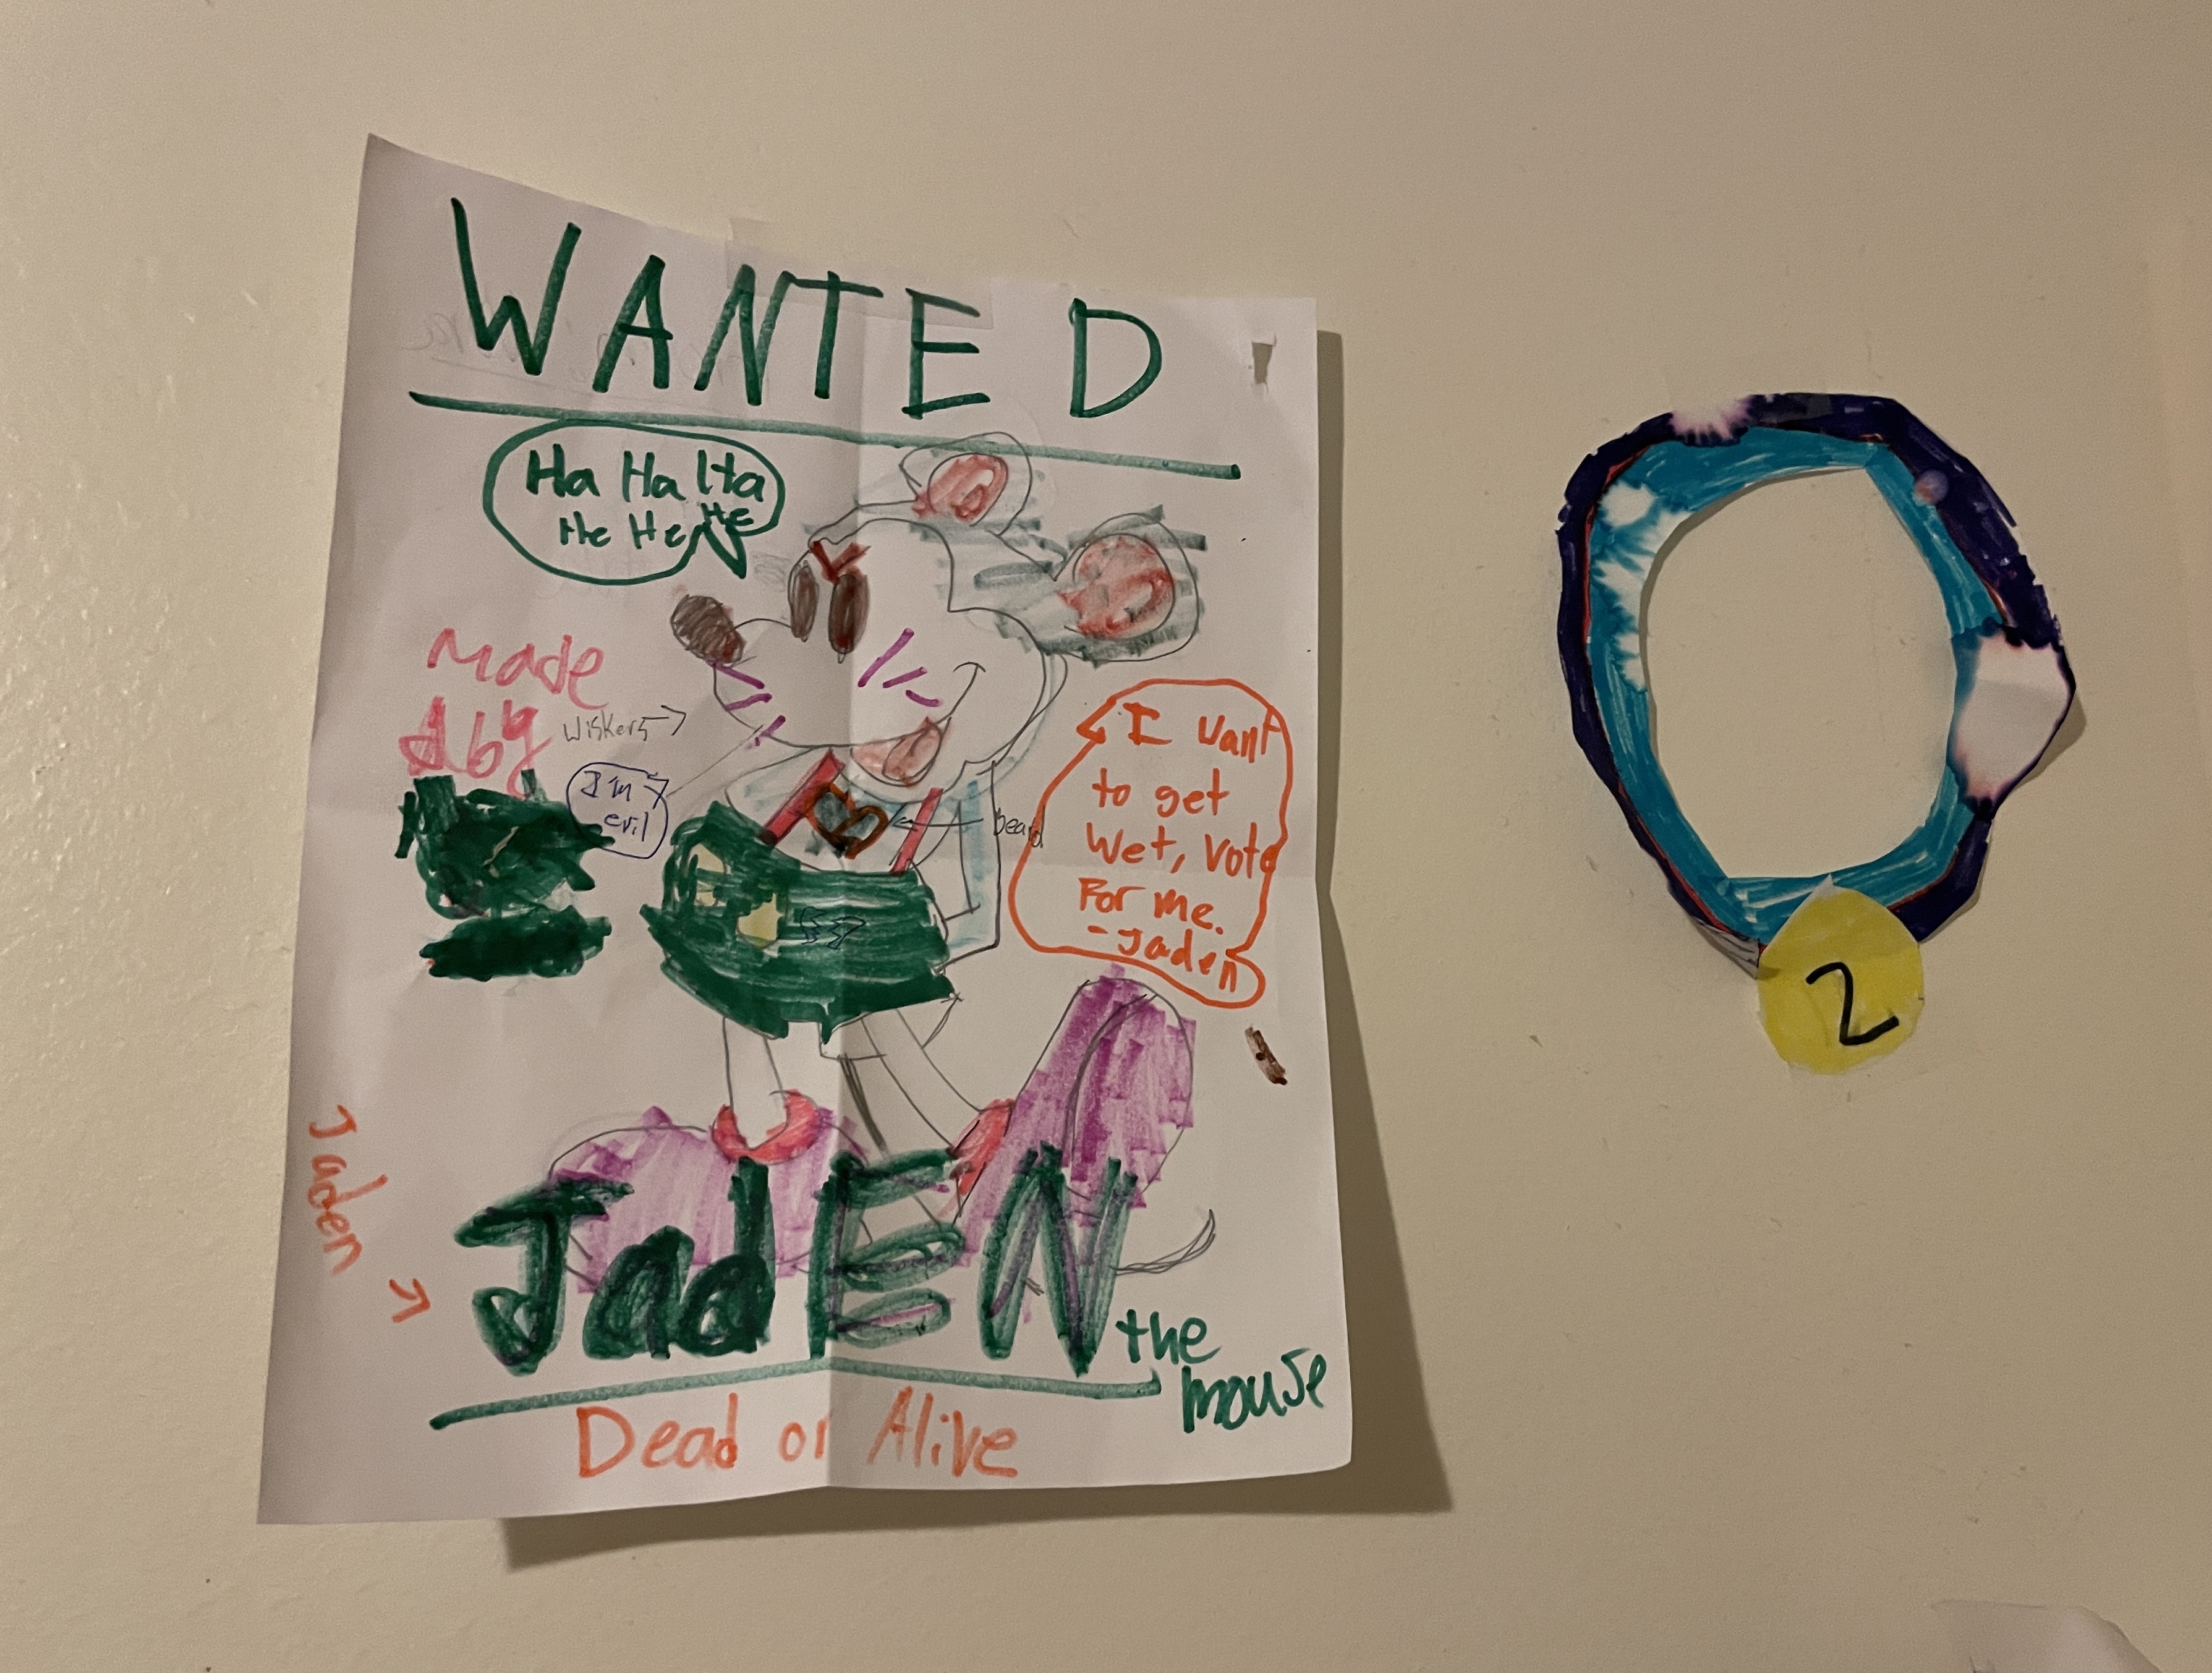 WANTED
Ha Ha Ha
He He He
made
by
wiskers
I'm
evil
beard
I want
to get
wet, vote
For me.
-Jaden
Jaden
JadEN
the
mouse
Dead or Alive
2